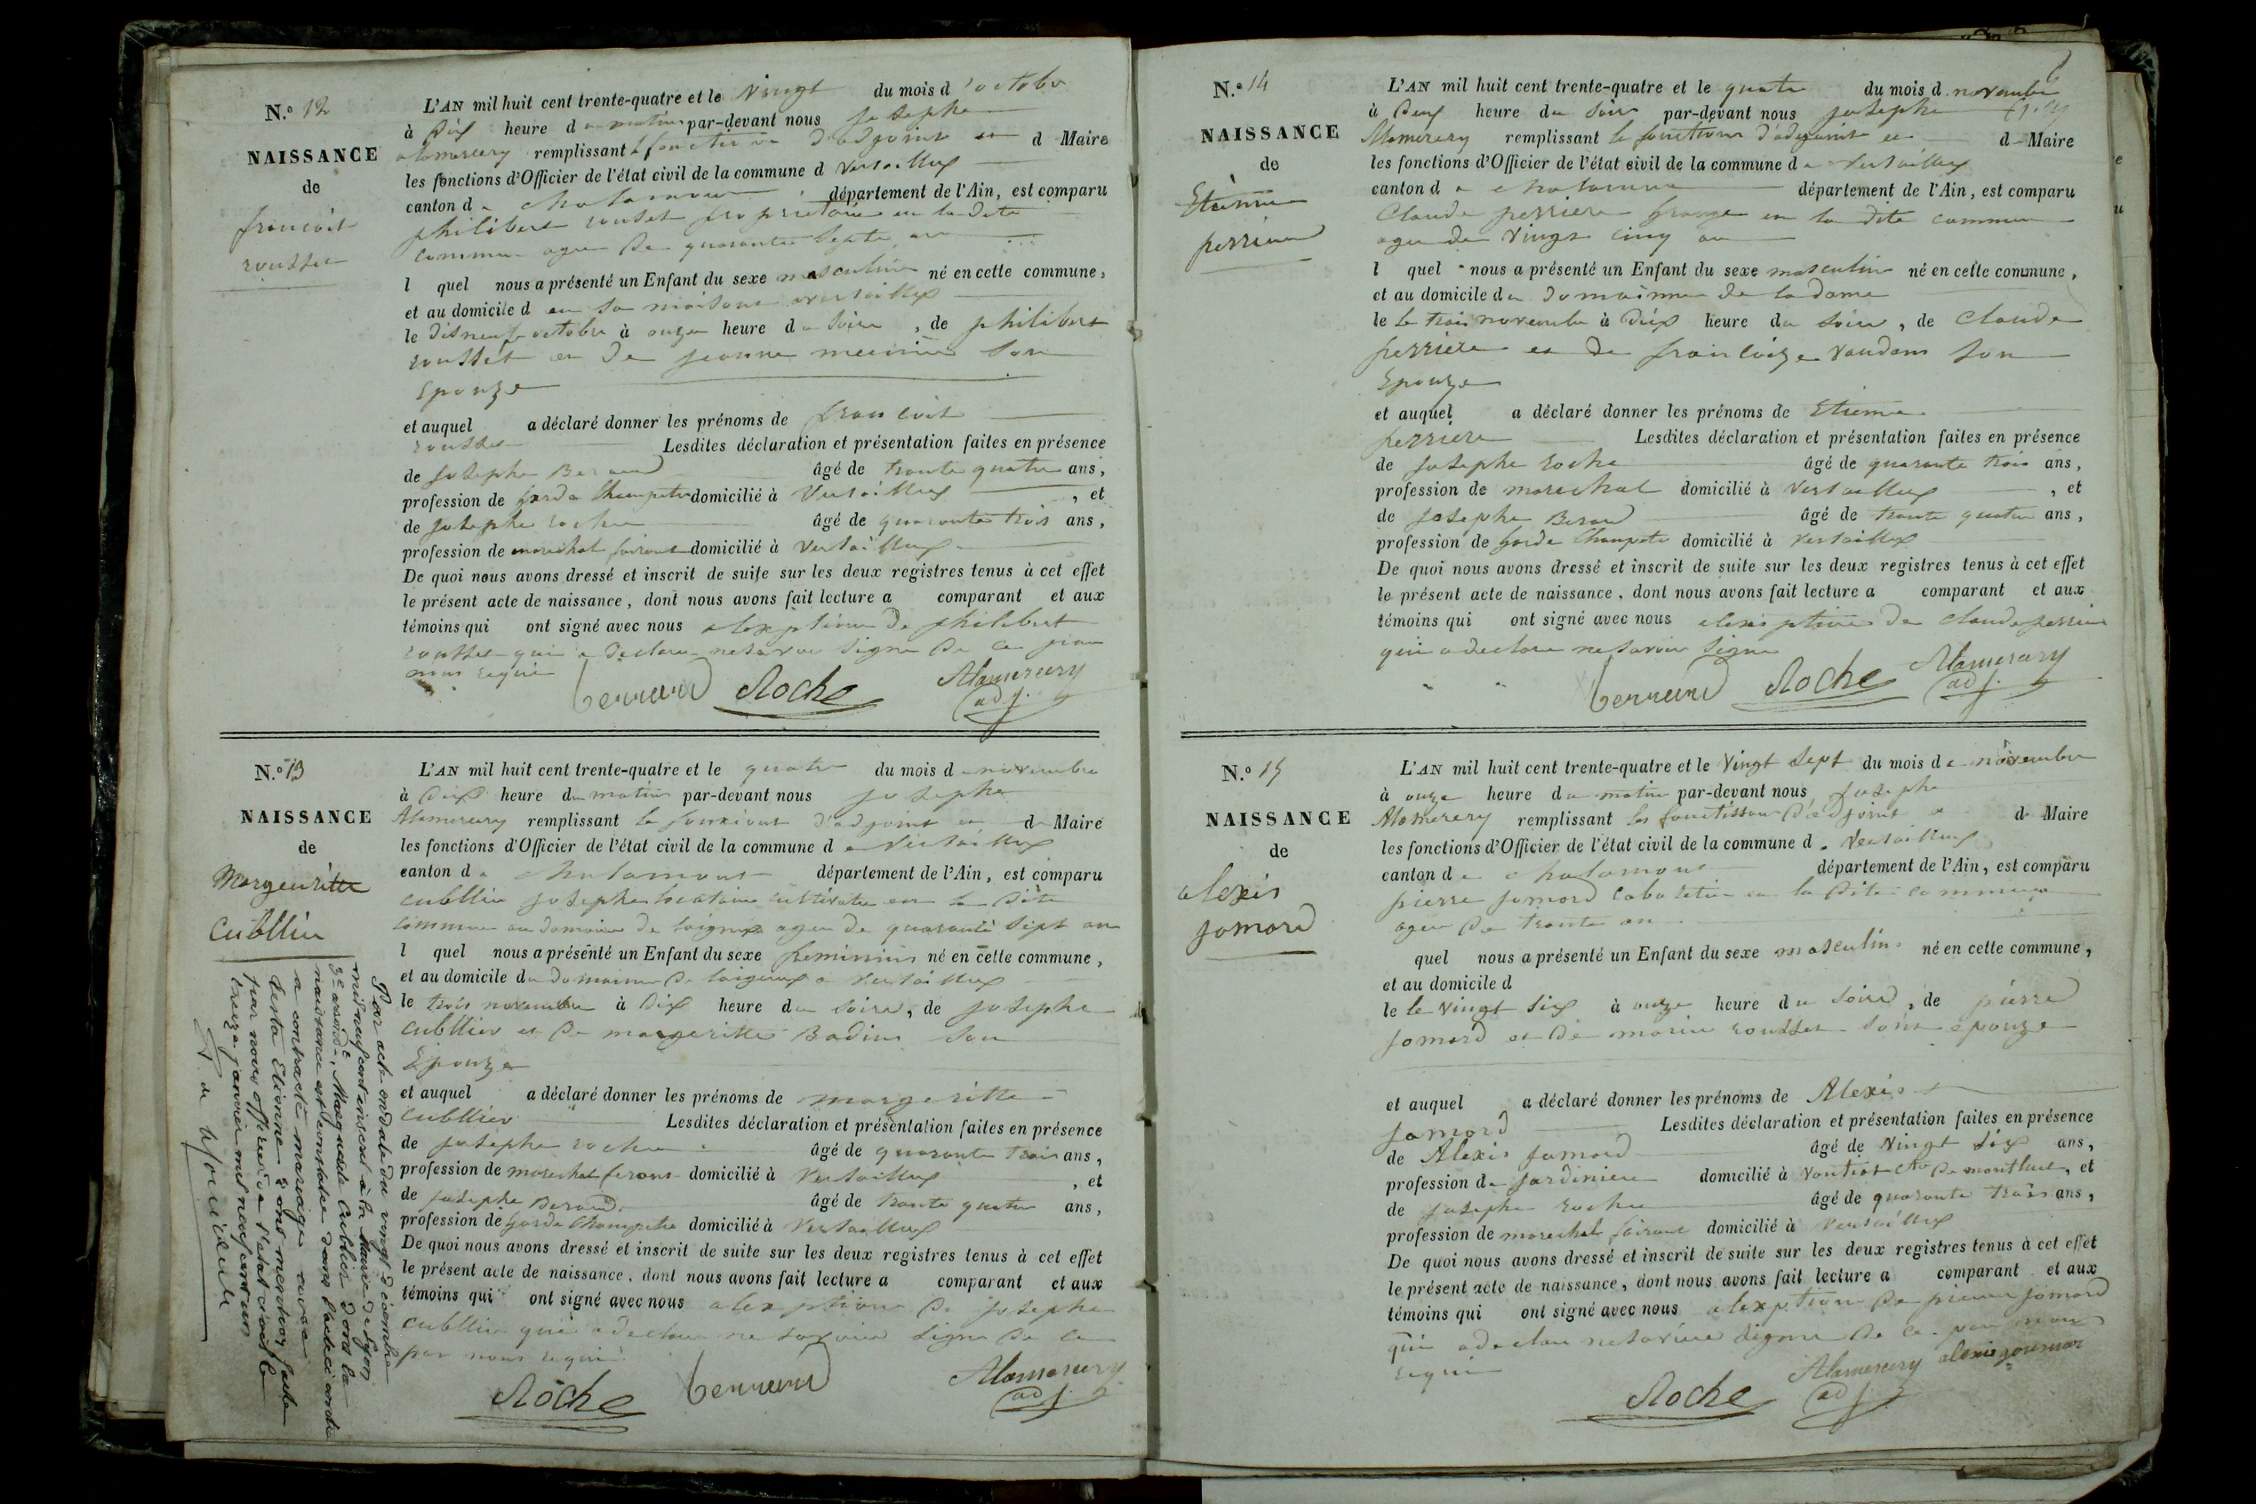 N.º 12
NAISSANCE
de
francoit
rousset
L'AN mil huit cent trente-quatre et le Vingt du mois d'octobre
à Dix heure d matin par-devant nous Josephe
alamercery remplissant fonction d'adjoint d Maire
les fonctions d'Officier de l'état civil de la commune d Versailleux
canton d chalamon département de l'Ain, est comparu
philibert rouset propriétaire en la dite
commune agee De quarante Septe an
l quel nous a présenté un Enfant du sexe masculin né en cette commune,
et au domicile d en Sa maison a versailleux
le disneuf octobre à onze heure d Soire, de philibert
rousset et De jeanne Son
Epouze
et auquel a déclaré donner les prénoms de francoit
rousset Lesdites déclaration et présentation faites en présence
de Josephe Beraud âgé de trante quatre ans,
profession de garde Champetre domicilié à Versailleux, et
de Josephe roche âgé de quarante trois ans,
profession de marechal domicilié à Versailleux
De quoi nous avons dressé et inscrit de suite sur les deux registres tenus à cet effet
le présent acte de naissance, dont nous avons fait lecture a comparant et aux
témoins qui ont signé avec nous alexption De philibert
rousset qui a Declare ne Savoir Signe De ce
nous requi
berraud Roche Alamercery
adj.
N.º 13
NAISSANCE
de
Margeuritte
Cubllier
L'AN mil huit cent trente-quatre et le quatre du mois d novembre
à Dix heure du matin par-devant nous Josephe
Alamercery remplissant le d'adjoint d Maire
les fonctions d'Officier de l'état civil de la commune d Versailleux
canton d chalamont département de l'Ain, est comparu
cubllier Josephe locataire cultivateur en la Dite
commune au domaine de agee de quarante Sept an
l quel nous a présenté un Enfant du sexe feminin né en cette commune,
et au domicile du Domaine De a Versailleux
le trois novembre à Dix heure du Soire, de Josephe
cubllier et De margeritte Badin Son
Epouze
et auquel a déclaré donner les prénoms de margeritte
cubllier Lesdites déclaration et présentation faites en présence
de Josephe roche âgé de quarante trois ans,
profession de marechal ferant domicilié à Versailleux, et
de Josephe Beraud âgé de trante quatre ans,
profession de garde Champetre domicilié à Versailleux
De quoi nous avons dressé et inscrit de suite sur les deux registres tenus à cet effet
le présent acte de naissance, dont nous avons fait lecture a comparant et aux
témoins qui ont signé avec nous alexption De Josephe
cubllier qui a declare ne Savoir Signe De ce
par nous requi
Roche berraud Alamercery
adj.
Par acte en date du vingt Décembre
mil neuf cent inscrit à la Mairie de Lyon
3e arrondt, Marguerite Cublier dont la
naissance est constatée dans l'acte ci contre
a contracté mariage avec
Testa Etienne Dont mention faite
par nous officier de l'état civil le
treize janvier mil neuf cent un
N.º 14
NAISSANCE
de
Etienne
perriere
L'AN mil huit cent trente-quatre et le quatre du mois d novembre
à Deux heure du Soir par-devant nous Josephe
Alamercery remplissant le fonctions d'adjoint d Maire
les fonctions d'Officier de l'état civil de la commune d Versailleux
canton d chalamon département de l'Ain, est comparu
Claude perriere en la dite commune
agee de Vingt cinq an
l quel nous a présenté un Enfant du sexe masculin né en cette commune,
et au domicile d domainne de la dame
le le trois novembre à Dix heure du Soire, de Claude
perriere et De francoize Vaudan Son
Epouze
et auquel a déclaré donner les prénoms de Etienne
perriere Lesdites déclaration et présentation faites en présence
de Josephe roche âgé de quarante trois ans,
profession de marechal domicilié à Versailleux, et
de Josephe Beraud âgé de trante quatre ans,
profession de garde Champetre domicilié à Versailleux
De quoi nous avons dressé et inscrit de suite sur les deux registres tenus à cet effet
le présent acte de naissance, dont nous avons fait lecture a comparant et aux
témoins qui ont signé avec nous De Claude perriere
qui a declare ne Savoir Signe
berraud Roche Alamercery
adj.
N.º 15
NAISSANCE
de
alexis
Jomard
L'AN mil huit cent trente-quatre et le Vingt Sept du mois de novembre
à onze heure du matin par-devant nous Josephe
Alamercery remplissant les D'adjoint d Maire
les fonctions d'Officier de l'état civil de la commune d Versailleux
canton de chalamont département de l'Ain, est comparu
pierre Jomard Cabaretier en la Dite commune
agee De trante an
quel nous a présenté un Enfant du sexe masculin né en cette commune,
et au domicile d
le le Vingt Six à onze heure du Soire, de pierre
Jomard et De marie rousset Son epouze
et auquel a déclaré donner les prénoms de Alexis
Jomard Lesdites déclaration et présentation faites en présence
de Alexis Jomard âgé de Vingt Six ans,
profession de Jardiniere domicilié à De montluel, et
de Josephe roche âgé de quarante trois ans,
profession de marechal domicilié à Versailleux
De quoi nous avons dressé et inscrit de suite sur les deux registres tenus à cet effet
le présent acte de naissance, dont nous avons fait lecture a comparant et aux
témoins qui ont signé avec nous alexption De pierre Jomard
qui a declare ne Savoire Signe De ce par nous
requi
Roche Alamercery alexis jomard
adj.